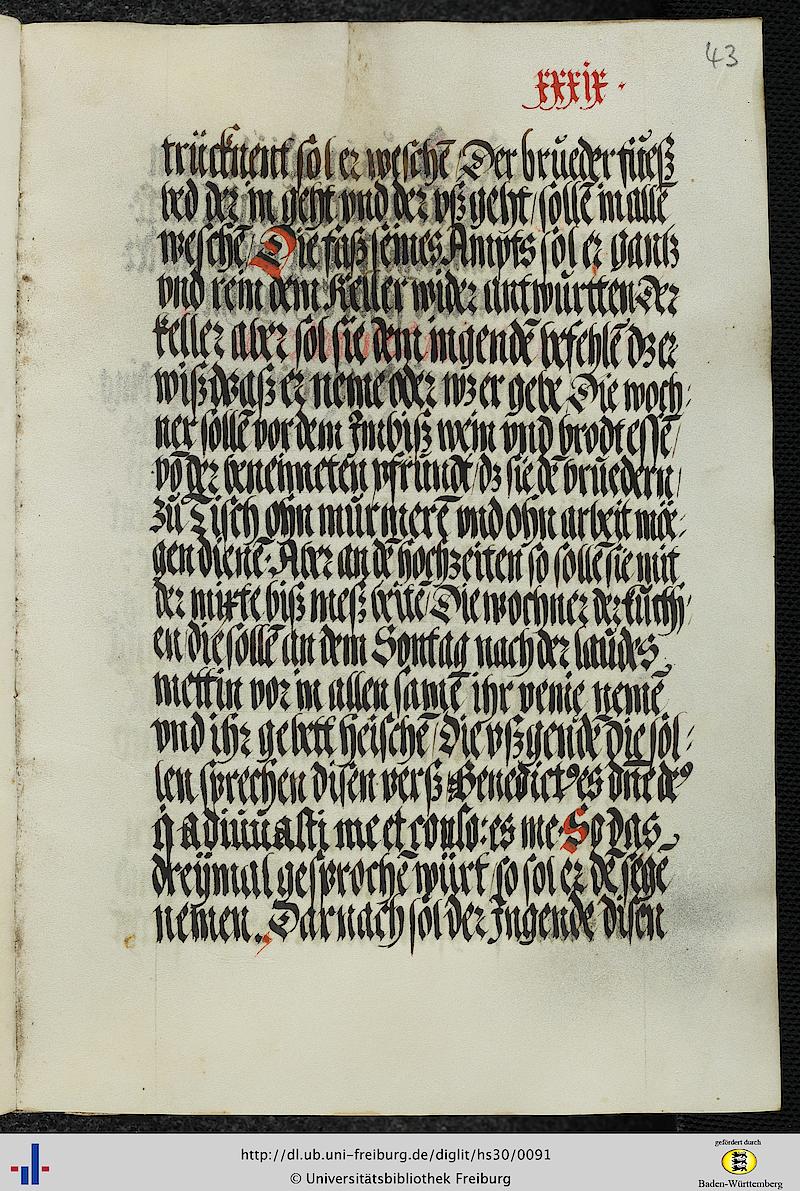 43
xxxix.
trücknent sol er weschē / Der brůeder füesß
bed der in geht vnd der vß geht / sollē in allē
weschē / Die faß seines Ampts sol er gantz
vnd rein dem Keller wider antwurtten der
keller aber sol sie dem ingendē befehlē dz er
wiß dz aß er neme oder wz er gebe Die woch:
ner sollē vor dem Jmbiß wein vnd brodt essē /
vō der beneimeten pfründt / dz sie dē brüedern /
zů Tisch ohn murmerē vnd ohn arbeit mö:
gen dienē. Aber an dē hochzeiten so sollē sie mit
der mixte biß meß beitē / Die wochner der kuch:
en / die sollē an dem Sontag nach der laudes
mettin vor in allen samē ihr venie nemē
vnd ihr gebett heischē / Die vßgendē die söl:
len sprechen disen verß Benedictꝰ es dn̄e deꝰ
q̄ adiuuasti me et conso: es me. So das
dreymal gesprochē würt / so sol er dē segē
nemen. Darnach sol der Jngende disen
http://dl.ub.uni-freiburg.de/diglit/hs30/0091
© Universitätsbibliothek Freiburg
gefördert durch
Baden-Württemberg